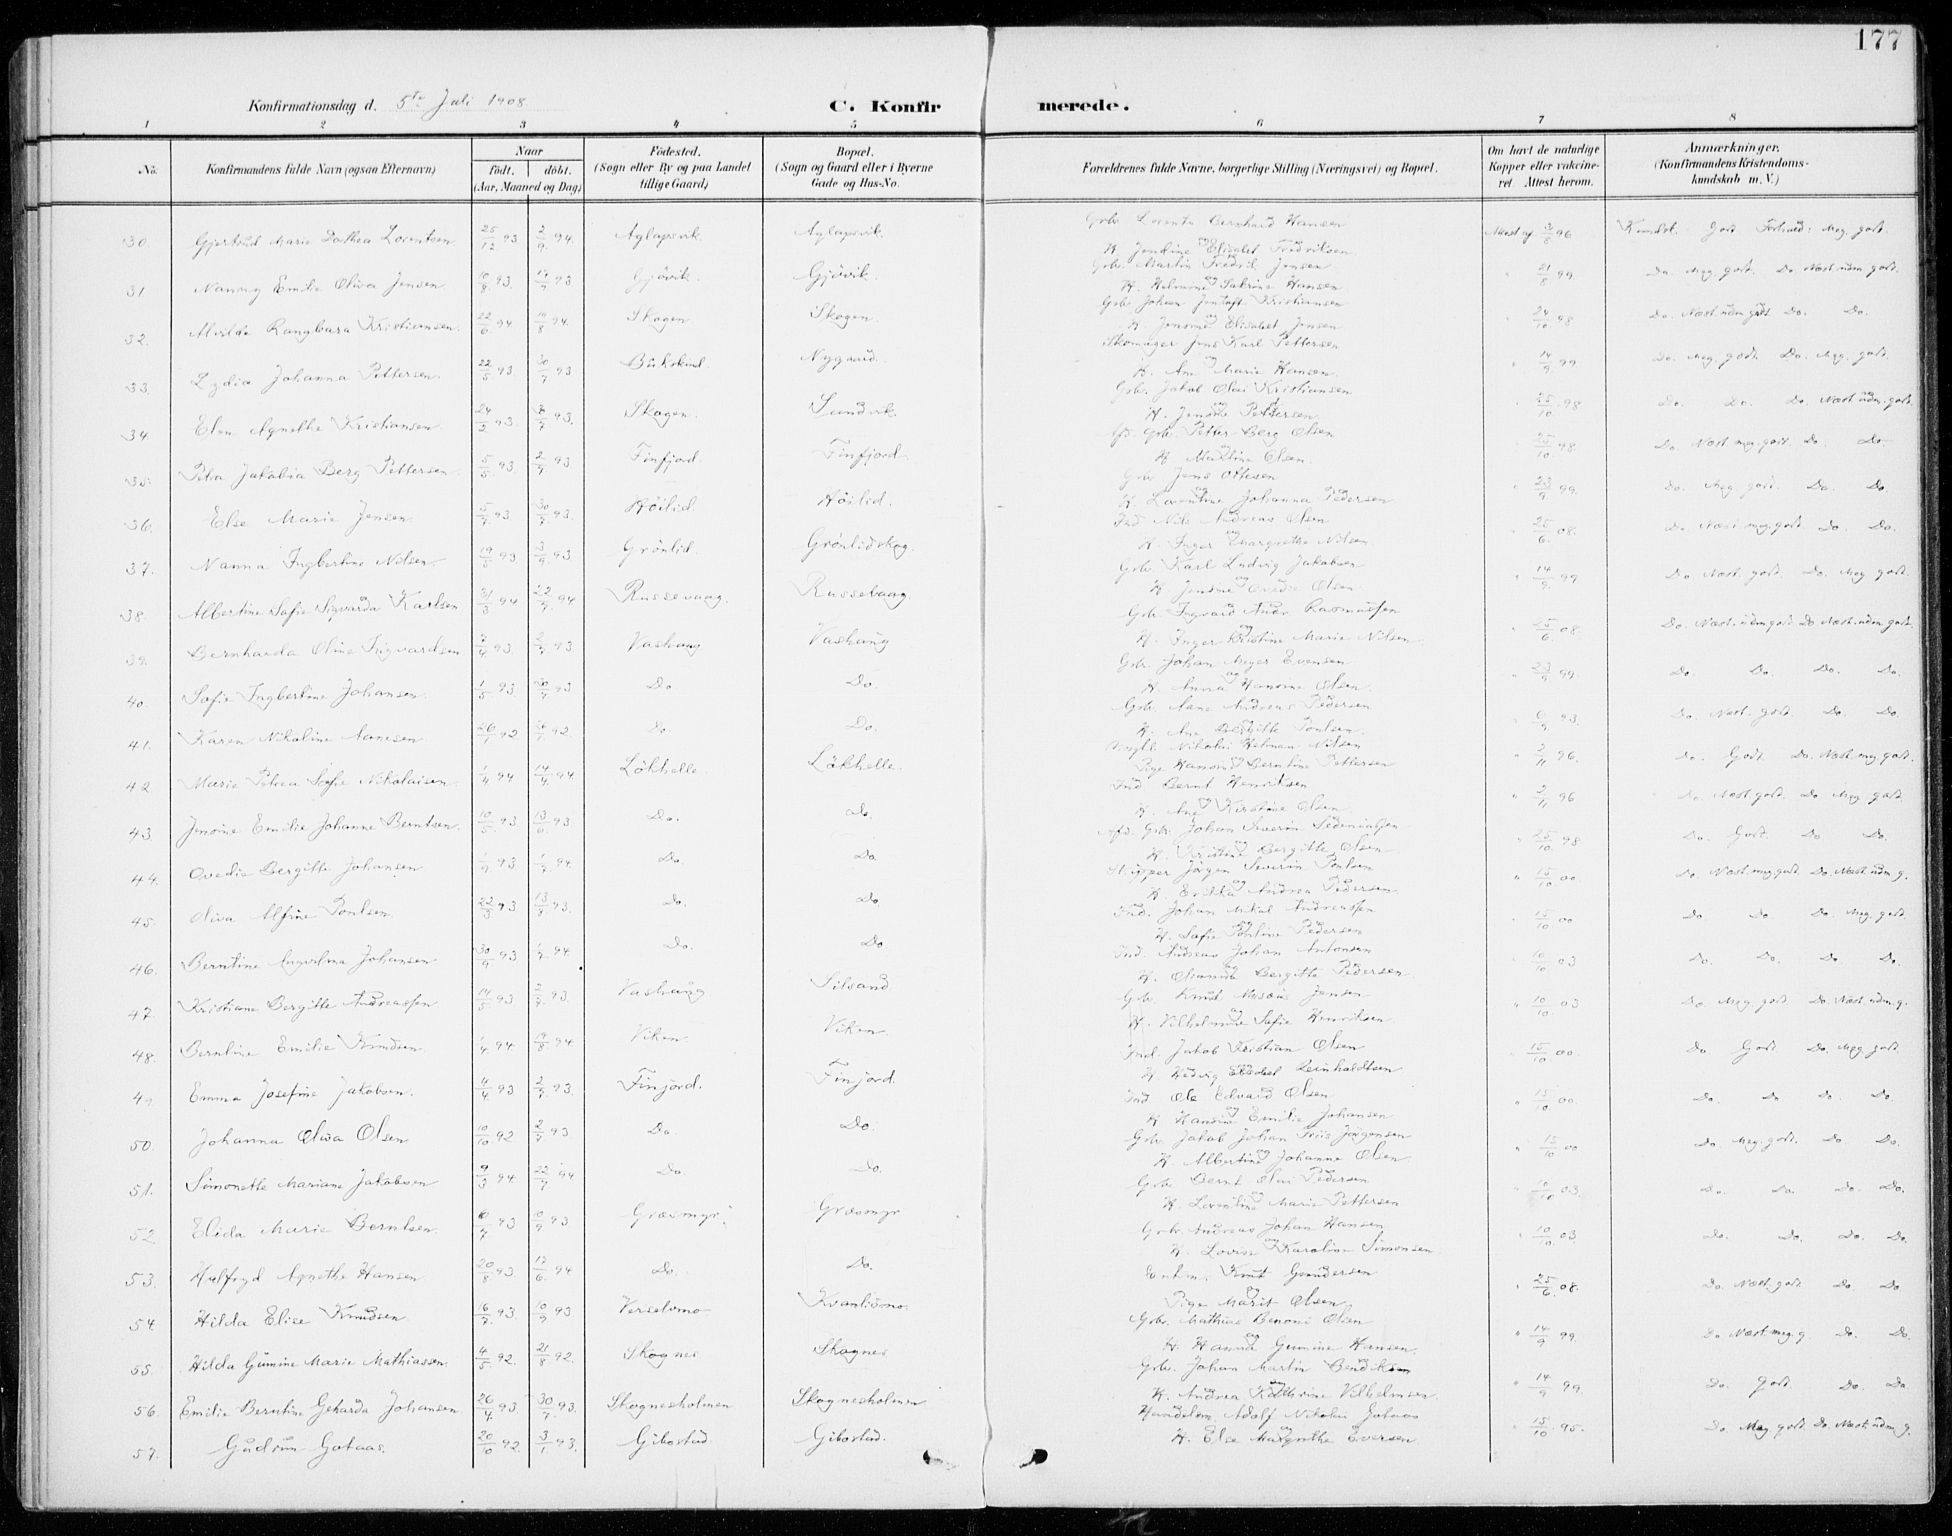 177
Konfirmationsdag d. 5te Juli 1908 C. Konfirmerede.
1 2 3 4 5 6 7 8
No. Konfirmandens fulde Navn (ogsaa Efternavn) Naar født. døbt. (Aar, Maaned og Dag) Fødested. (Sogn eller By og paa Landet tillige Gaard) Bopæl. (Sogn og Gaard eller i Byerne Gade og Hus-No. Forældrenes fulde Navne, borgerlige Stilling (Næringsvei) og Bopæl. Om havt de naturlige Kopper eller vakcineret. Attest herom. Anmærkninger. (Konfirmandens Kristendomskundskab m. V.)
30. Gjertrud Marie Dorthea Lorentsen 25/12 93 2/9 94. Aglapsvik. Aglapsvik. Gbr. Lorents Bernhard Hansen
og H. Jensine Elisabet Fredriksen 96 Kundsk. Godt Forhold: Meg. godt.
31. Nanny Emilie Oliva Jensen 93. 93 Gjövik. Gjövik. Gbr. Martin Fredrik Jensen
og H. Helmine Sabrine Hansen 21/8 99. Do. Meg. godt. Do. Næst. udm. godt.
32. Alvilda Rangbara Kristiansen. 22/6 94 19/8 94. Skogen Skogen. Gbr. Johan Jentoft Kristiansen
og H. Jensine Elisabet Jensen 24/10 98 Do. Næst. udm. godt Do. Do.
33. Lydia Johanna Pettersen. 22/5 93. 30/7 93 Bukskind. Nygaard. Skomager Jens Karl Pettersen
og H. Ane Marie Hansen. 14/9 99. Do. Meg. godt. Do. Meg. godt.
34. Elen Agnethe Kristiansen 24/2 93. 93. Skogen. Sandvik. Gbr. Jakob Olai Kristiansen
og H. Jensine Pettersen 25/10 98 Do. Do. Do. Næst udm. godt.
35. Petra Jakobia Berg Pettersen 5/5 93 2/7 93. Finfjord. Finfjord. Afd. Gbr. Petter Berg Olsen
og H. Olsen. 25/10 98. Do. Næst meg. godt. Do. Do.
36. Else Marie Jensen. 93. 30/7 93. Höilid. Höilid. Gbr. Jens Ottesen
og H. Lorentine Johanna Pedersen 23/9 99. Do. Meg. godt. Do. Do.
37. Nanna Ingbertine Nilsen 19/5 93 3/9 93. Grönlid. Grönlidskog. Ind. Nils Andreas Olsen
og H. Inger Margrethe Nilsen 25/6. 08. Do. Næst meg. godt. Do. Do.
38. Albertine Sofie Sigvarda Karlsen 31/3 94 22/7 94 Russevaag. Russevaag. Gbr. Karl Ludvig Jakobsen
og H. Jensine Ovedie Olsen. 14/9 99 Do. Næst. godt. Do. Meg. godt.
39. Bernharda Oline Ingvardsen 93. 93 Vashaug Vashaug Gbr. Ingvard Andr. Rasmussen
og H. Inger Kristine Marie Nilsen 25/6 08. Do. Næst. udm. godt. Do Næst. udm. godt.
40. Sofie Ingbertine Johansen 1/5 93 30/7 93 Do Do. Gbr. Johan Meyer Evensen
og H. Anna Hansine Olsen. 23/9 99. Do. Do. Do. Do.
41. Karen Nikoline Aanesen 92 92. Do. Do. Gbr. Aane Andreas Pedersen
og H. Ane Bergitte Poulsen. 93. Do. Næst. godt. Do. Do.
42. Marie Petrea Sofie Nikolaisen. 1/4 94 94 Lökhelle. Lökhelle. Ungkl. Nikolai Helman Nilsen
og Pige Hansine Berntine Pettersen 2/11 96. Do. Godt. Do. Næst. meg. godt.
43. Jensine Emilie Johanne Berntsen. 10/5 93 13/6 93. Do. Do. Ind. Bernt Henriksen
og H. Ane Kirstine Olsen. 2/11 96 Do. Næst godt. Do. Meg. godt.
44. Ovedie Bergitte Johansen 1/9 93 1/7 94. Do. Do. Afd. Gbr. Johan Severin
og H. Kristine Bergitte Olsen. 25/10 98 Do. Godt. Do Do.
45. Oliva Alfine Poulsen. 22/3 93 13/8 93. Do. Do. Skipper Jörgen Severin Poulsen
og H. Andrea Pedersen. 15/10 00. Do. Næst. meg. godt. Do. Næst. udm. g.
46. Berntine Johansen 30/9 93 1/7 94. Do. Do Ind. Johan Mikal Andreassen
og H. Sofie Pedersen 15/10 00 Do Do Do. Meg. godt.
47. Kristiane Bergitte Andreassen 14/5 93 2/7 93. Vashaug Silsand Ind. Andreas Johan Antonsen
H. Bergitte Pedersen 10/10 03 Do. Do. Do. Do.
48. Berntine Emilie Knudsen. 1/4 94. 19/8 94 Viken. Viken. Gbr. Knut Jensen
og H. Vilhelmine Sofie Henriksen 10/10 03 Do. Meg. godt Do. Næst. udm. g.
49. Emma Josefine Jakobsen. 4/4 93 2/7 93. Finjord. Finjord. Ind. Jakob Kristian Olsen
H. Hedvig Reinholdtsen 15/10 00. Do Godt Do. Meg. godt.
50. Johanna Oliva Olsen 10/10 92 2/7 93 Do. Do. Ind Ole Edvard Olsen
og H Hansine Emilie Johansen 15/10 00. Do. Do Do. Do.
51. Simonette Mariane Jakobsen 9/3 94 22/7 94 Do. Do. Gbr. Jakob Johan Friis Jörgensen
og H. Albertine Johanne Olsen 15/10 00 Do. Meg. godt. Do. Do.
52 Elida Marie Berntsen. 93 10/9 93 Græsmyr. Græsmyr Gbr. Bernt Olai Pedersen
og H. Lorentine Marie Pettersen 10/10 03. Do. Do. Do. Do.
53. Hulfryd Agnethe Hansen 20/8 93. 17/6. 94 Do. Do. Gbr. Andreas Johan Hansen
og H. Lovise Karoline Simonsen 10/10. 03. Do. Do. Do. Do.
54. Hilda Elise Knudsen 16/7 93 10/9 93 Verselvmo Kvanlismo. Enkem. Knut Gundersen
og Pige Marit Olsen 25/6. 08. Do. Næst. godt. Do. Do
55. Hilda Gumine Marie Mathiassen. 4/5 92. 21/8 92. Skognes Skognes Gbr. Mathias Benoni Olsen
og H. Hanna Gumine Hansen. 14/9 99. Do. Næst. meg. g. Do. Do.
56. Emilie Berntine Geharda Johansen. 26/4 93 30/7 93. Skognesholmen Skognesholmen Gbr. Johan Martin Bendiksen
og H. Andrea Kathrine Vilhelmsen 14/9 99. Do. Godt. Do. Do
57. Gudrun Gotaas. 92. 3/1 93. Gibostad. Gibostad. Handelsm. Adolf Nikolai Gotaas
og H. Else Magnthe Eversen 15/10 95. Do Meg. godt. Do. Næst. udm. g.